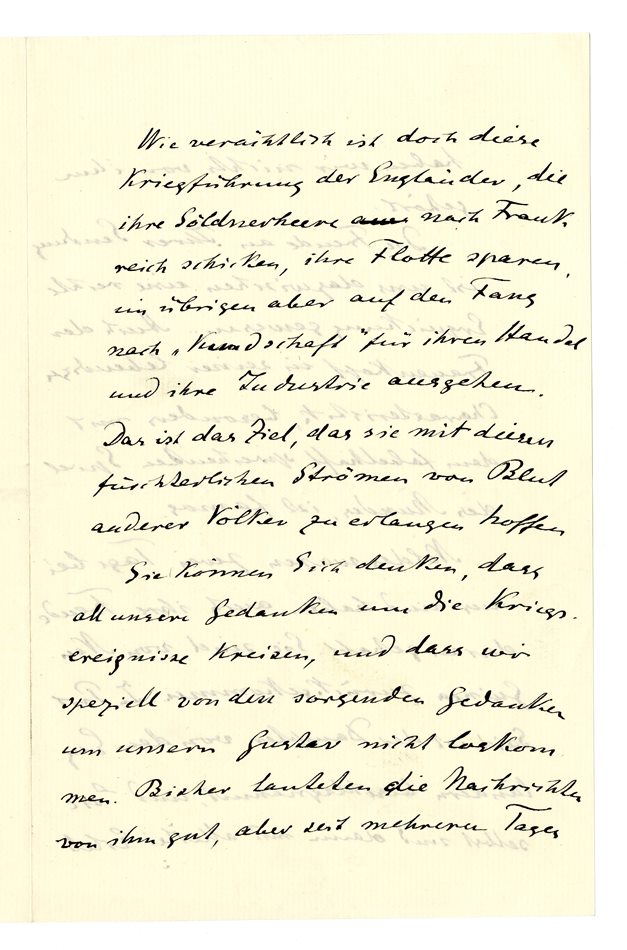 Wie verächtlich ist doch diese
Kriegführung der Engländer, die
ihre Söldnerheere nach Frank
reich schicken, ihre Flotte sparen,
im übrigen aber auf den Fang
nach „Kundschaft" für ihren Handel
und ihre Industrie ausgehen.
Das ist das Ziel, das sie mit diesen
fürchterlichen Strömen von Blut
anderer Völker zu erlangen hoffen
Sie können Sich denken, dass
all unsere Gedanken um die Kriegs-
ereignisse kreisen, und dass wir
speziell von den sorgenden Gedanken
um unsern Gustav nicht loskom
men. Bisher lauteten die Nachrichten
von ihm gut, aber seit mehreren Tagen